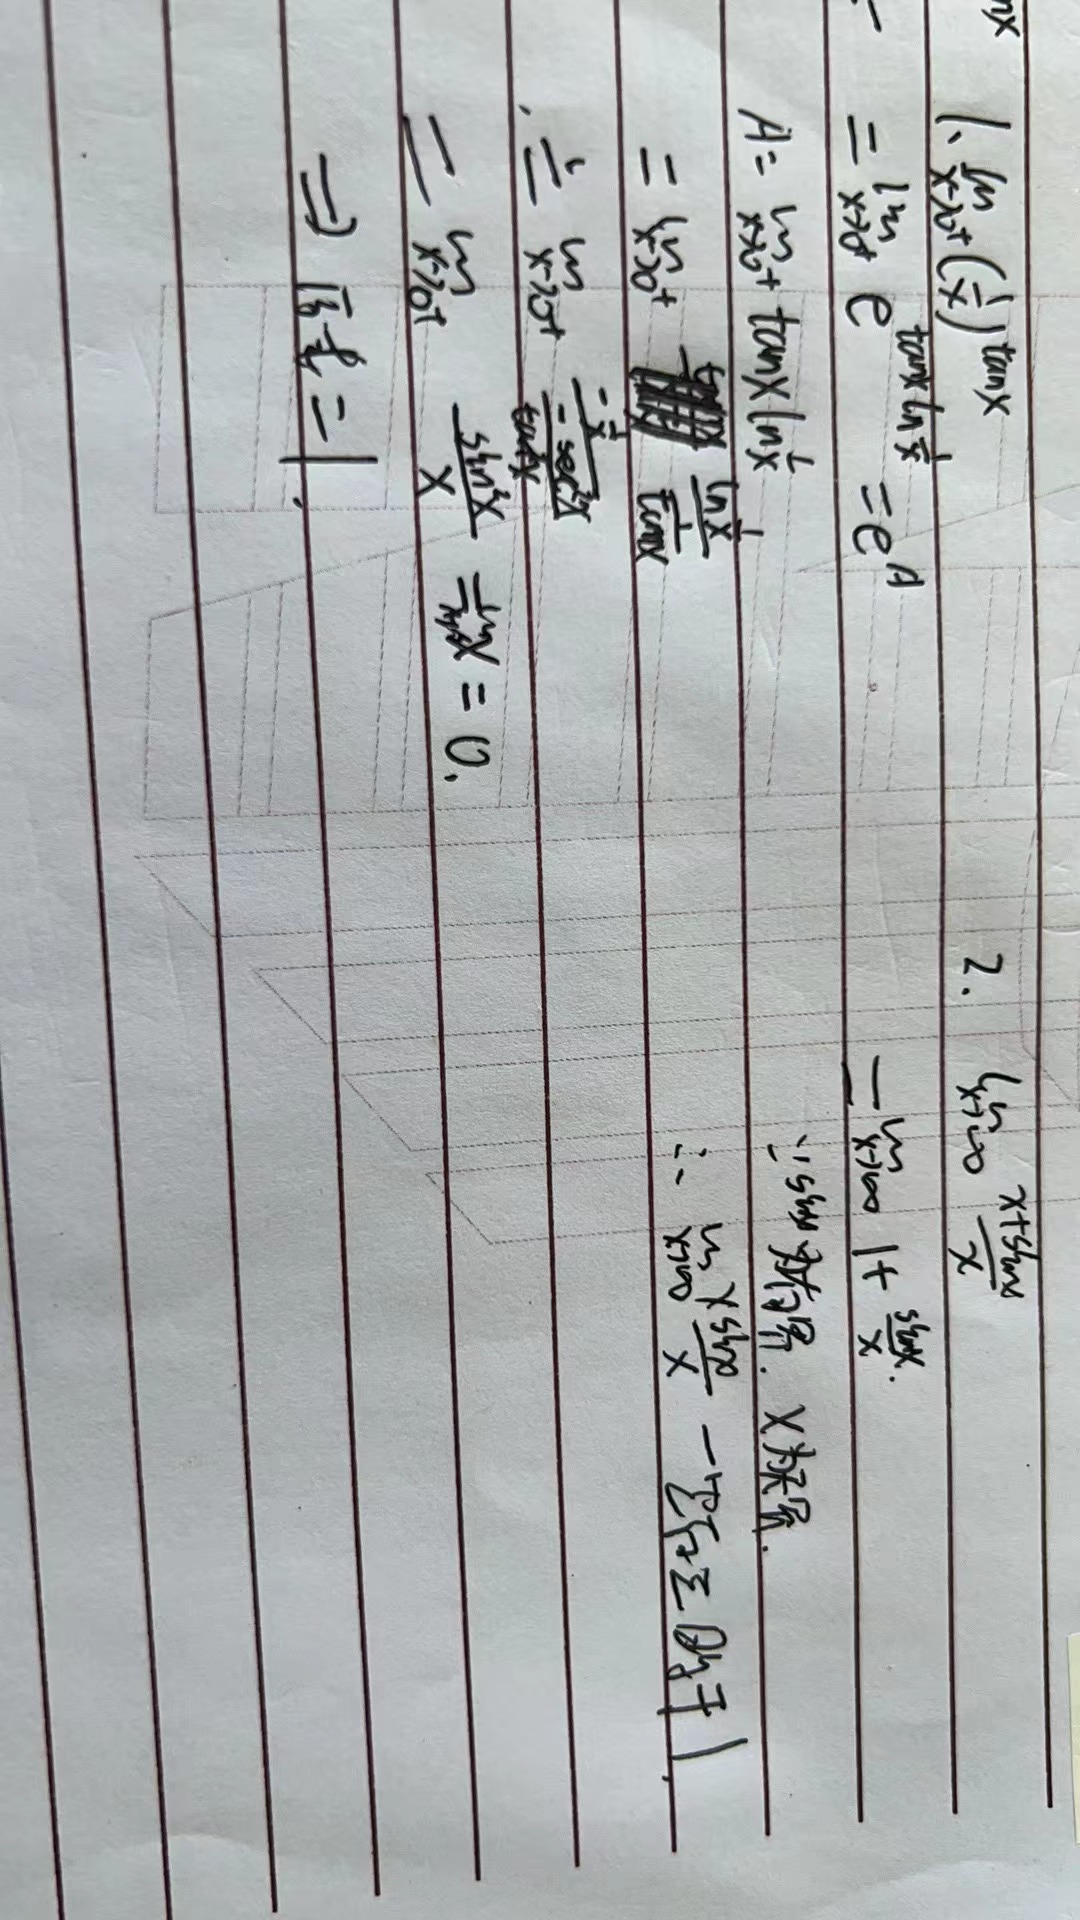 nx
1、lim x→0+ (1/x)^tanx
= lim x→0+ e^(tanx ln 1/x) = e^A
A = lim x→0+ tanx ln 1/x
= lim x→0+ (ln 1/x)/(1/tanx)
= lim x→0+ (-1/x)/(-sec²x/tan²x)
= lim x→0+ sin²x/x = lim x = 0.
⇒ 原式 = 1.
2. lim x→∞ (x+sinx)/x
= lim x→∞ 1 + sinx/x.
∵ sinx 为有界. x为无界.
∴ lim x→∞ sinx/x